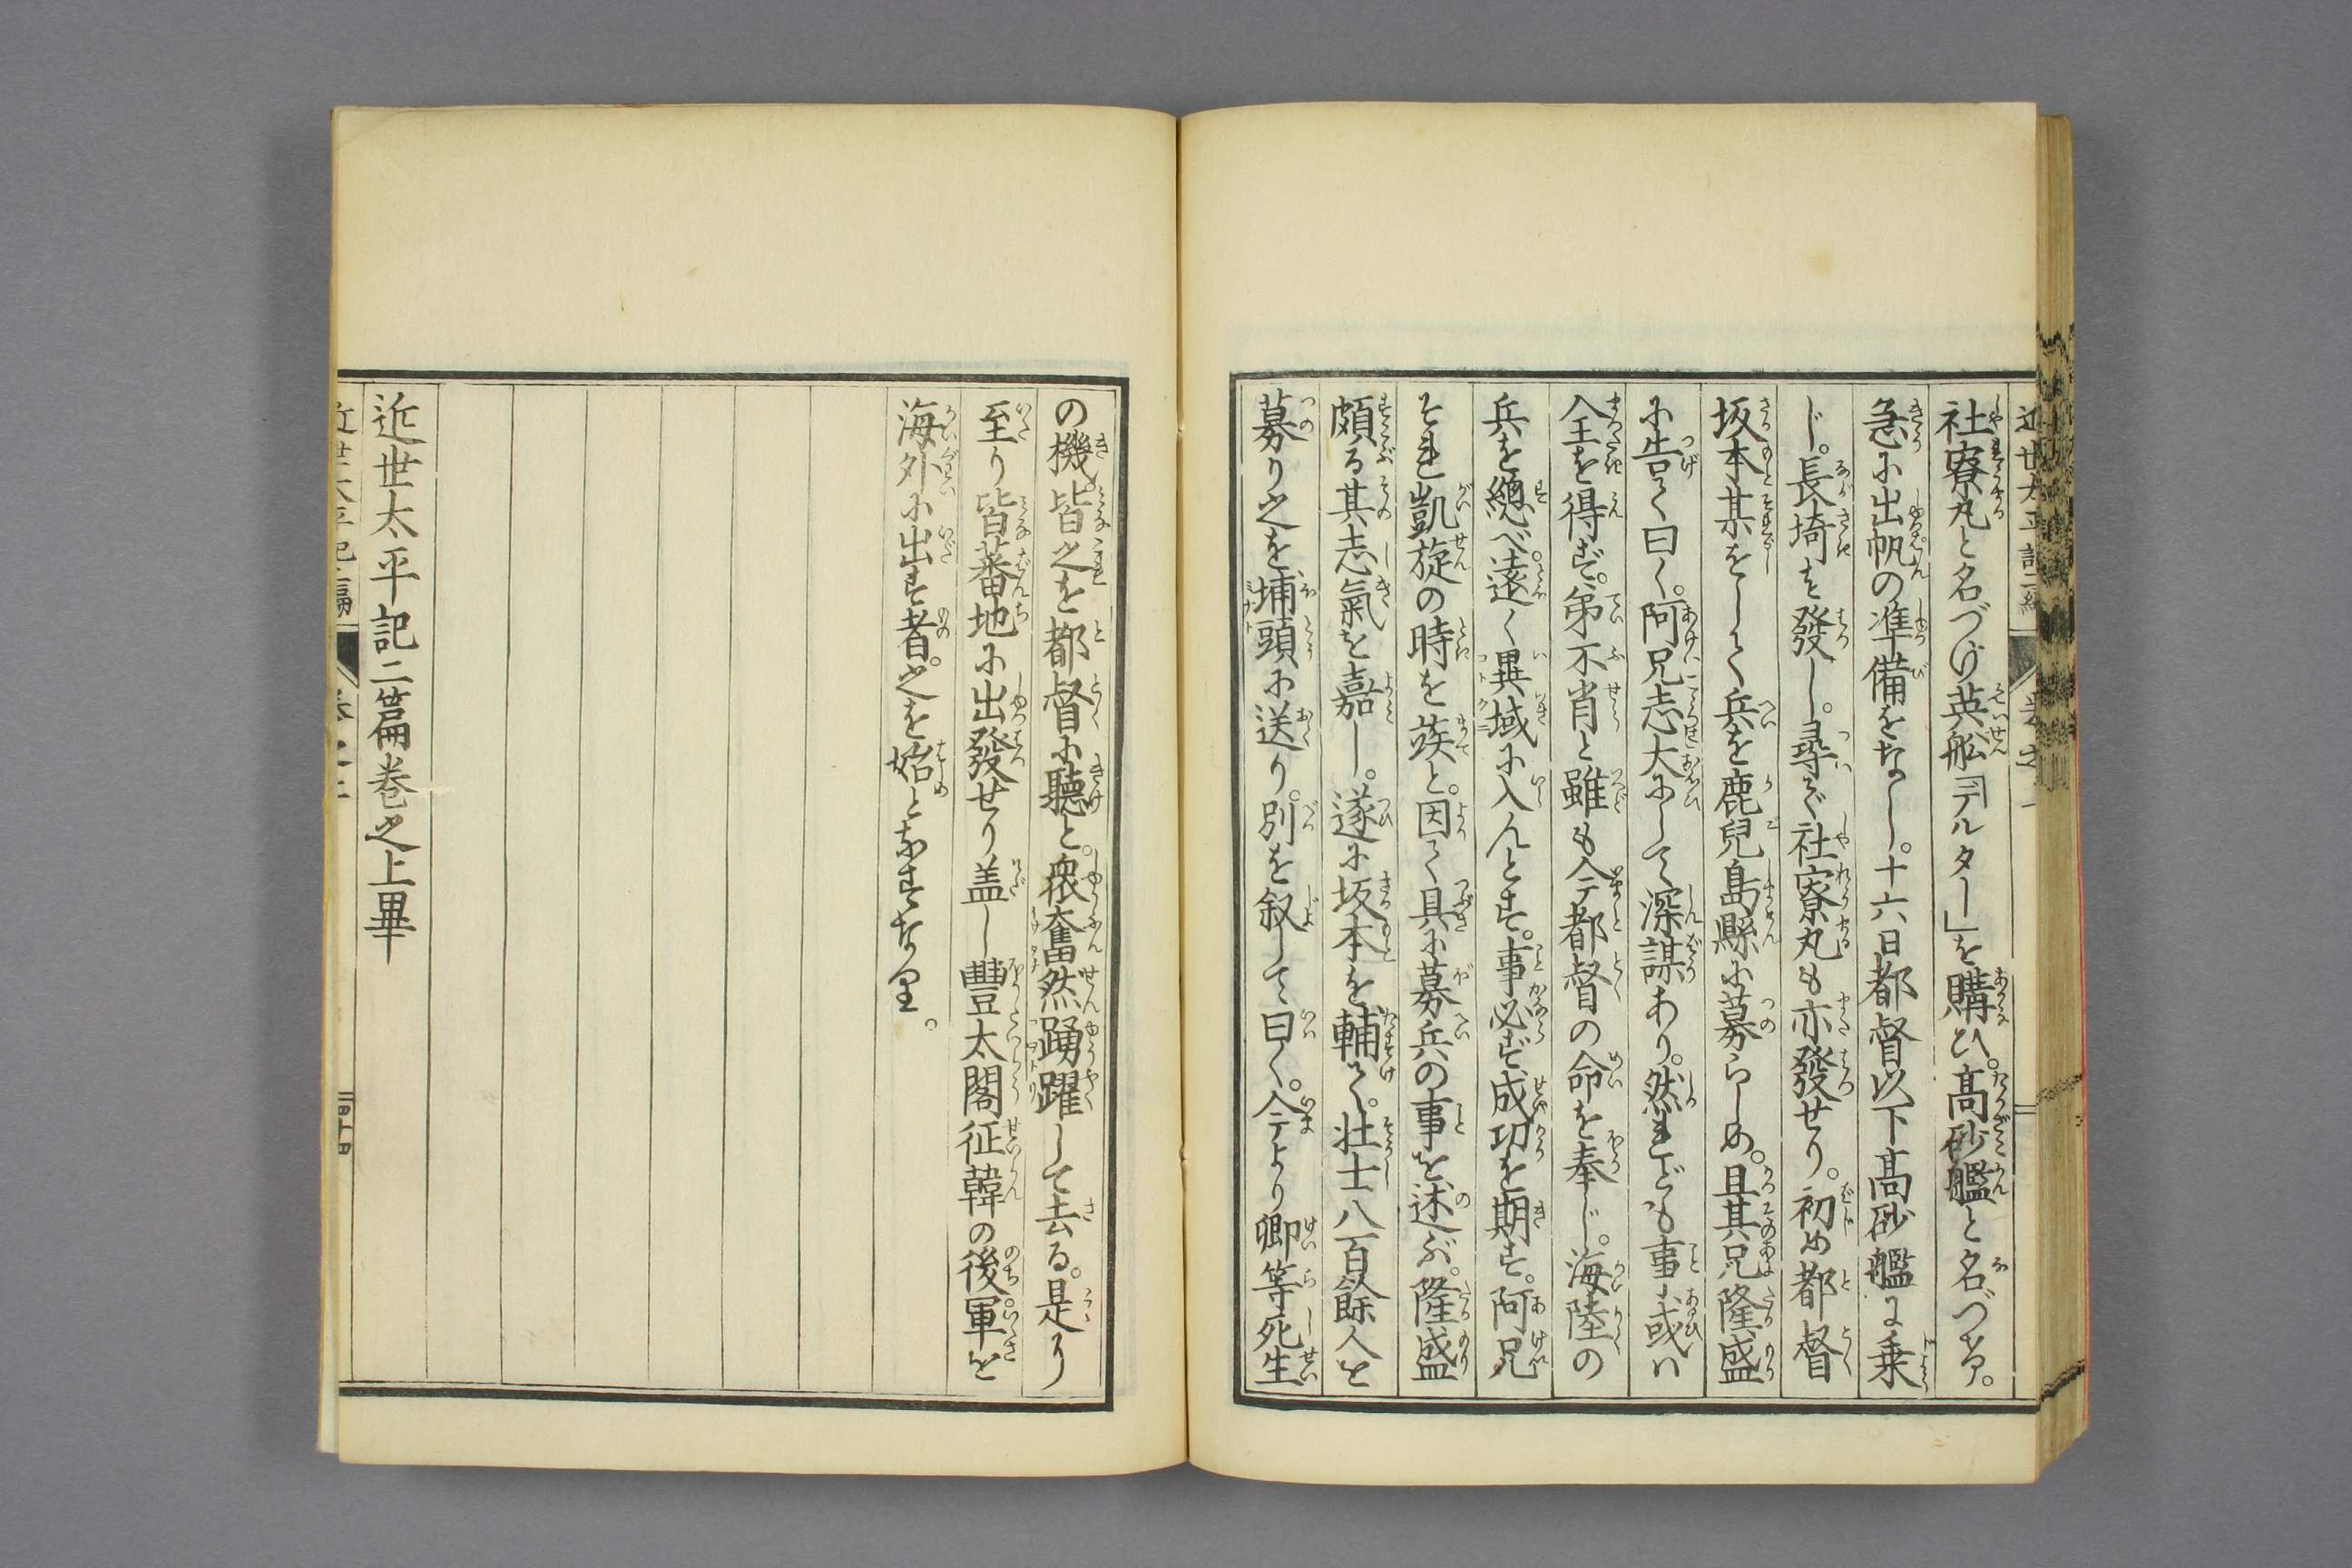 社寮丸と名づけ英舩「デルター」を購ひ。髙砂艦と名づけ。
急に出帆の準備をなし。十六日都督以下髙砂艦に乗
じ。長埼を發し。尋で社寮丸も亦發せり。初め都督
坂本某をして兵を鹿兒島縣に募らしめ。且其兄隆盛
に告て曰く。阿兄志大にして深謀あり。然れども事或ハ
全を得ず。弟不肖と雖も今都督の命を奉じ。海陸の
兵を總べ。遠く異域に入んとす。事必ず成功を期す。阿兄
それ凱旋の時を竢と。因て具に募兵の事を述ぶ。隆盛
頗る其志氣を嘉し。遂に坂本を輔て。壮士八百餘人を
募り之を埔頭に送り。別を叙して曰く。今より卿等死生
の機。皆之を都督に聽と。衆奮然踴躍して去る。是り
至り皆蕃地に出發せり盖し豐太閤征韓の後。軍を
海外に出す者。之を始となすなり。
近世太平記二篇巻之上畢
近世太平記二編
四十四